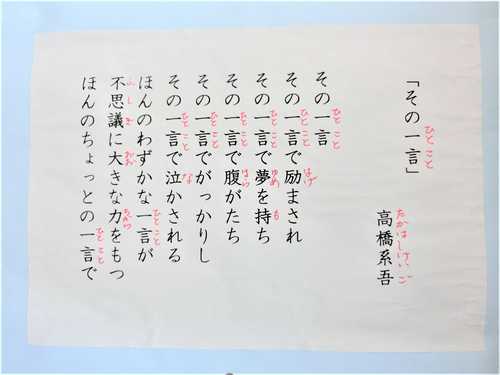 「その一言」
ひとこと
高橋系吾
たかはしけいご
その一言
ひとこと
その一言で励まされ
ひとこと はげ
その一言で夢を持ち
ひとこと ゆめ も
その一言で腹がたち
ひとこと はら
その一言でがっかりし
ひとこと
その一言で泣かされる
ひとこと な
ほんのわずかな一言が
ひとこと
不思議に大きな力をもつ
ふしぎ おお ちから
ほんのちょっとの一言で
ひとこと